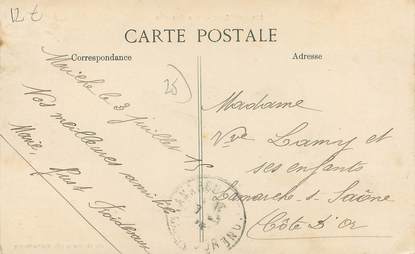 12 €
CARTE POSTALE
Correspondance
Adresse
25
Maîche le 3 juillet 15
Nos meilleures amitiés
Marie, Just Froidevaux
Madame
Vve Lamy et
ses enfants
Lamarche-s-Saône
Côte d'Or